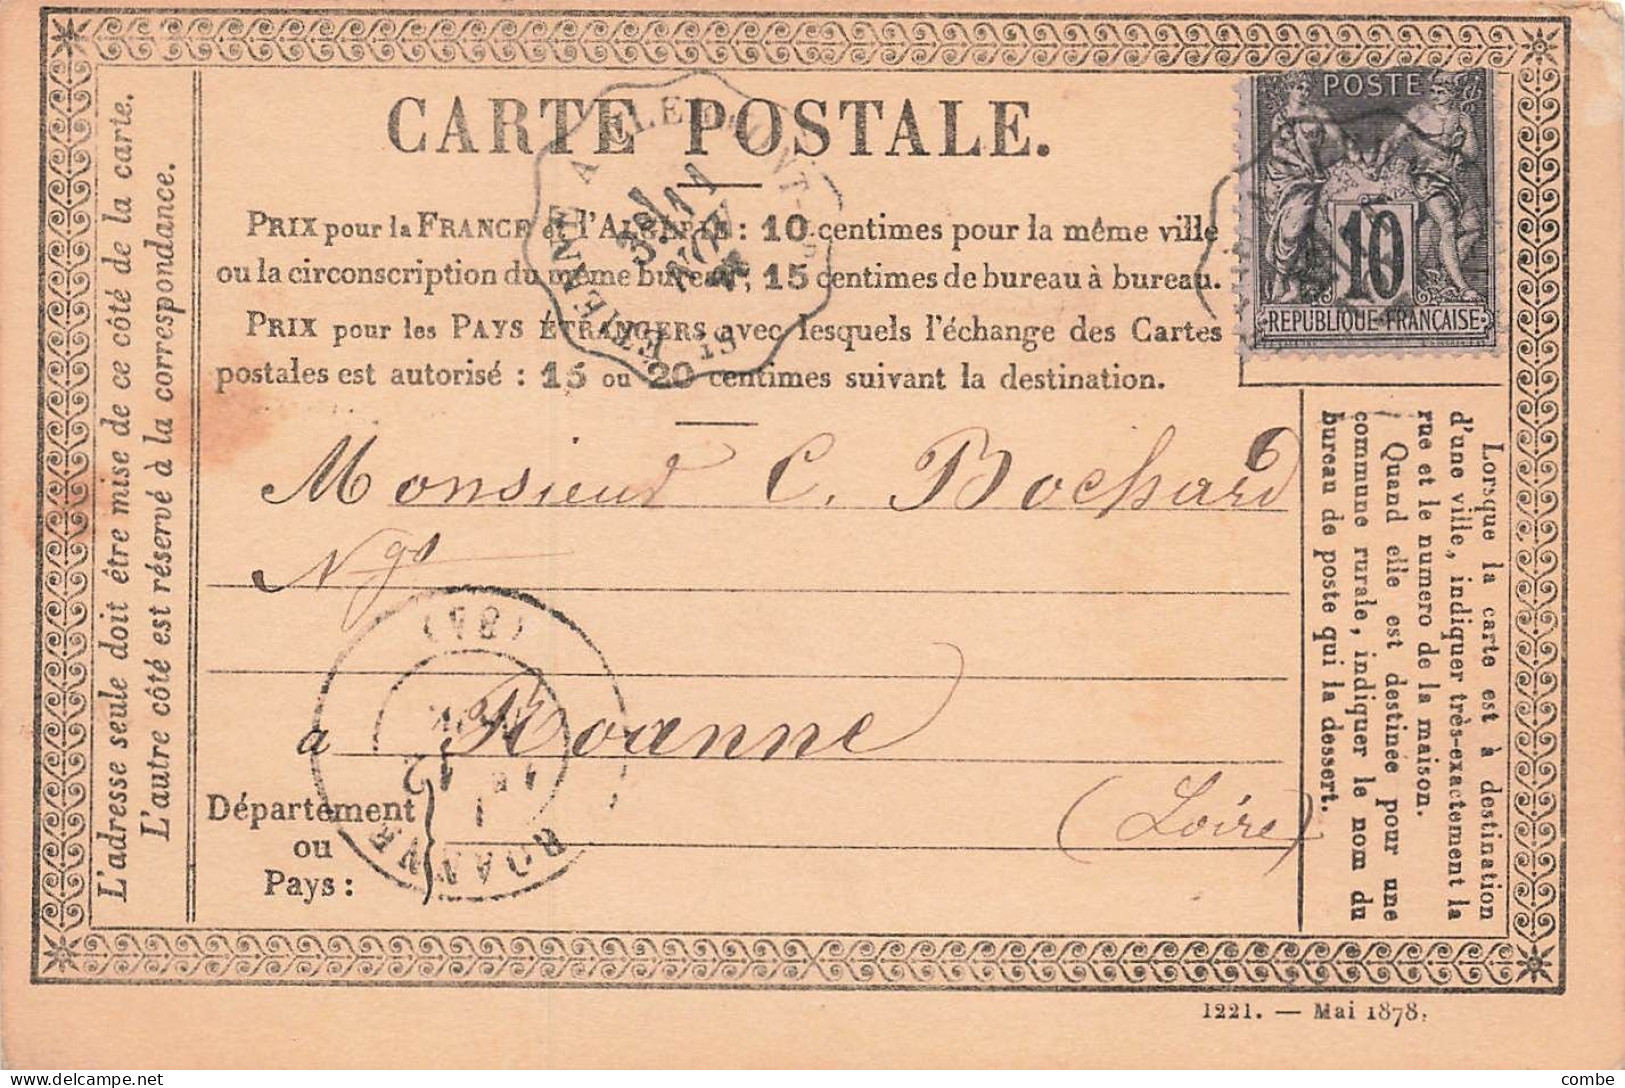 CARTE POSTALE.
PRIX pour la FRANCE et l'ALGÉRIE : 10 centimes pour la même ville
ou la circonscription du même bureau ; 15 centimes de bureau à bureau.
PRIX pour les PAYS ÉTRANGERS avec lesquels l'échange des Cartes
postales est autorisé : 15 ou 20 centimes suivant la destination.
POSTE
10
REPUBLIQUE FRANÇAISE
ST ETIENNE A CLERMONT-F
11
NOV
L'adresse seule doit être mise de ce côté de la carte.
L'autre côté est réservé à la correspondance.
Monsieur C. Bochard
Ngt
a Roanne
Département
ou
Pays :
(Loire)
ROANNE
12
(84)
Lorsque la carte est à destination
d'une ville, indiquer très-exactement la
rue et le numero de la maison.
Quand elle est destinée pour une
commune rurale, indiquer le nom du
bureau de poste qui la dessert.
1221. — Mai 1878.
combe